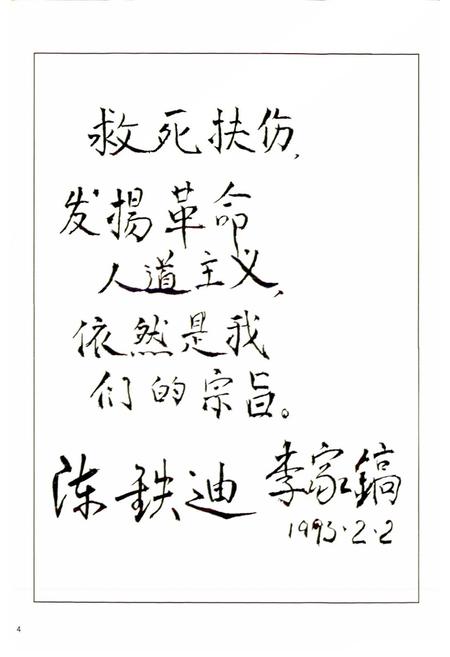 救死扶伤，
发揚革命
人道主义，
依然是我
们的宗旨。
陈铁迪 李家鎬
1993·2·2
4